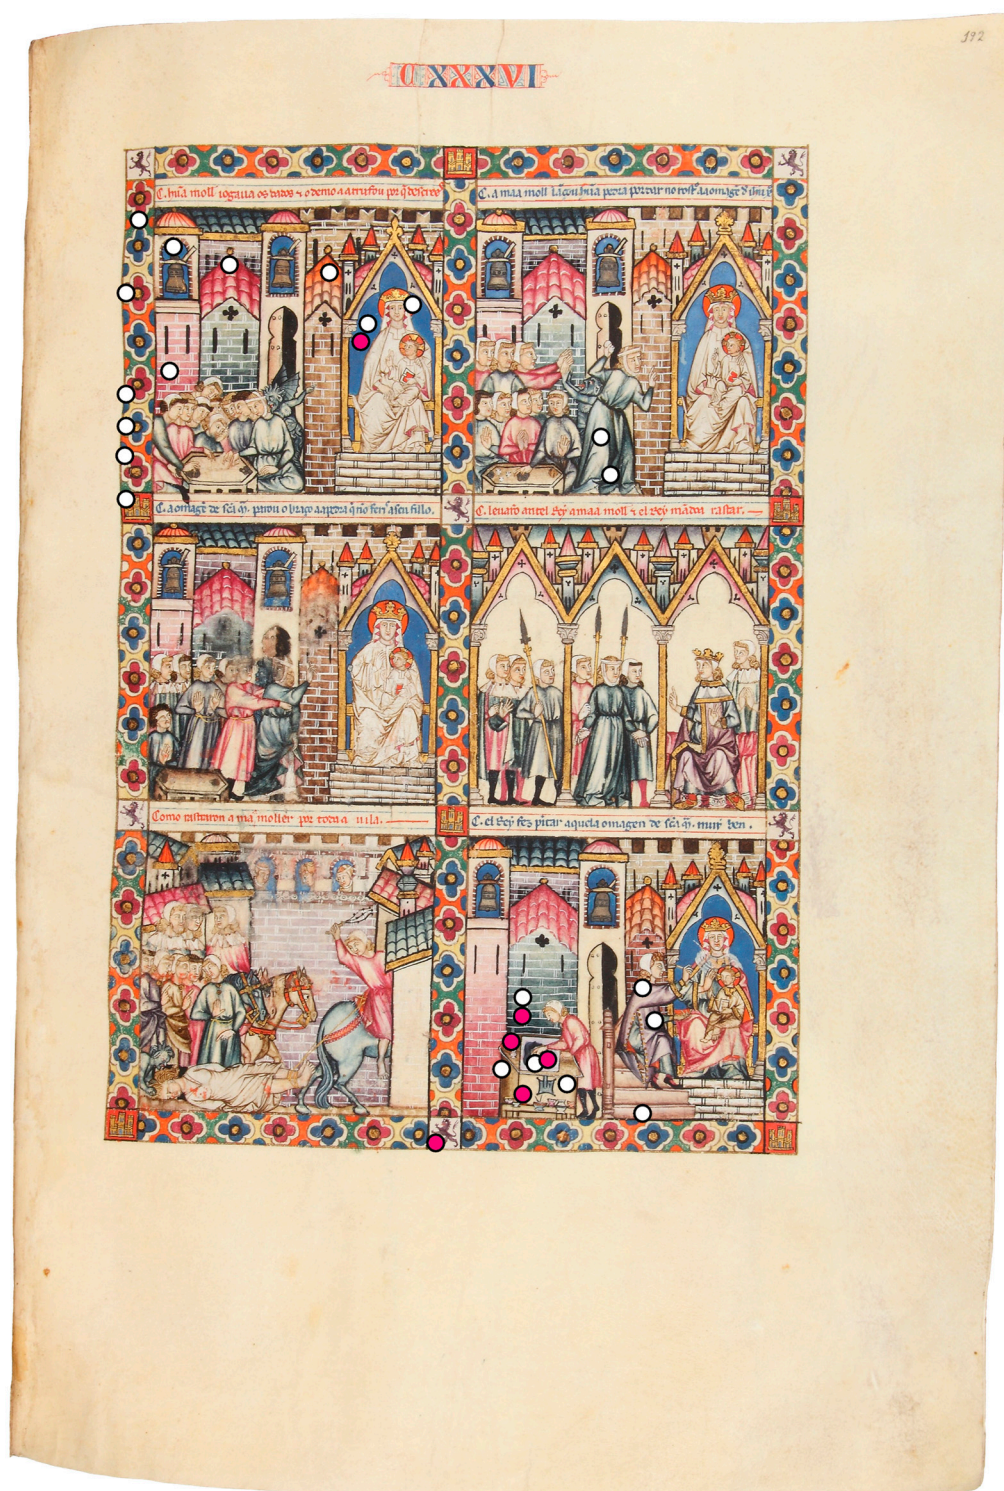 192
CXXXVI
C. hũa moll iogaua os dados ⁊ o demo a atrafou por q̃ descreeu
C. a maa moll lãçou hũa pedra por dar no rostr̃ aa omagẽ d
C. a omagẽ de sc̃a m̃. parou o braço aa pedra q̃ nõ feri a seu fillo.
C. leuarõ antel Rey a maa moll ⁊ el Rey mãdou a rastrar.
Como rastraron a maa moller per toda a uila.
C. el Rey fez pĩtar aquela omagen de sc̃a m̃. muy ben.